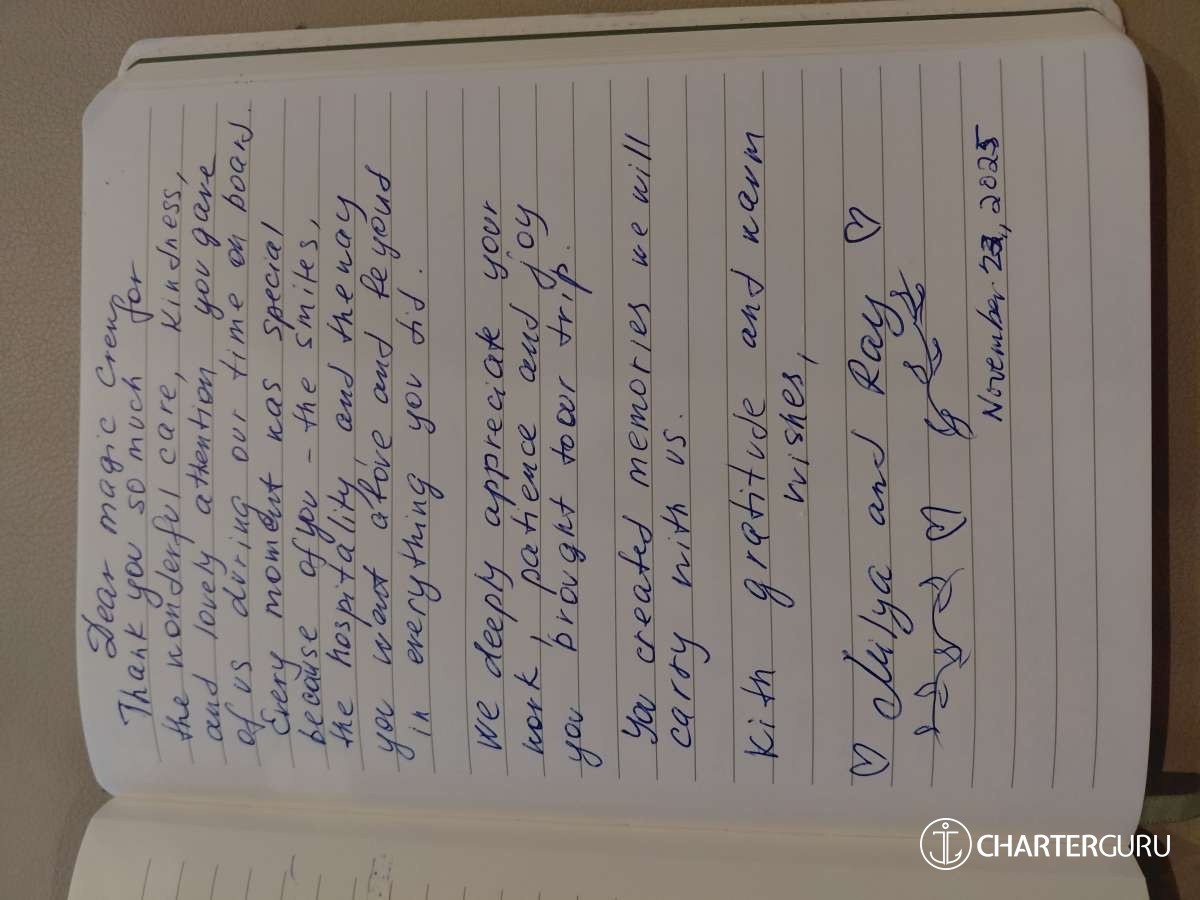 Dear magic Crew
Thank you so much for
the wonderful care, kindness,
and lovely attention you gave
of us during our time on board.
Every moment was special
because of you - the smiles,
the hospitality and the way
you went above and beyond
in everything you did.
We deeply appreciate your
work, patience and joy
you brought to our trip.
You created memories we will
carry with us.
With gratitude and warm
wishes,
Milya and Ray
November 23, 2025
CHARTERGURU